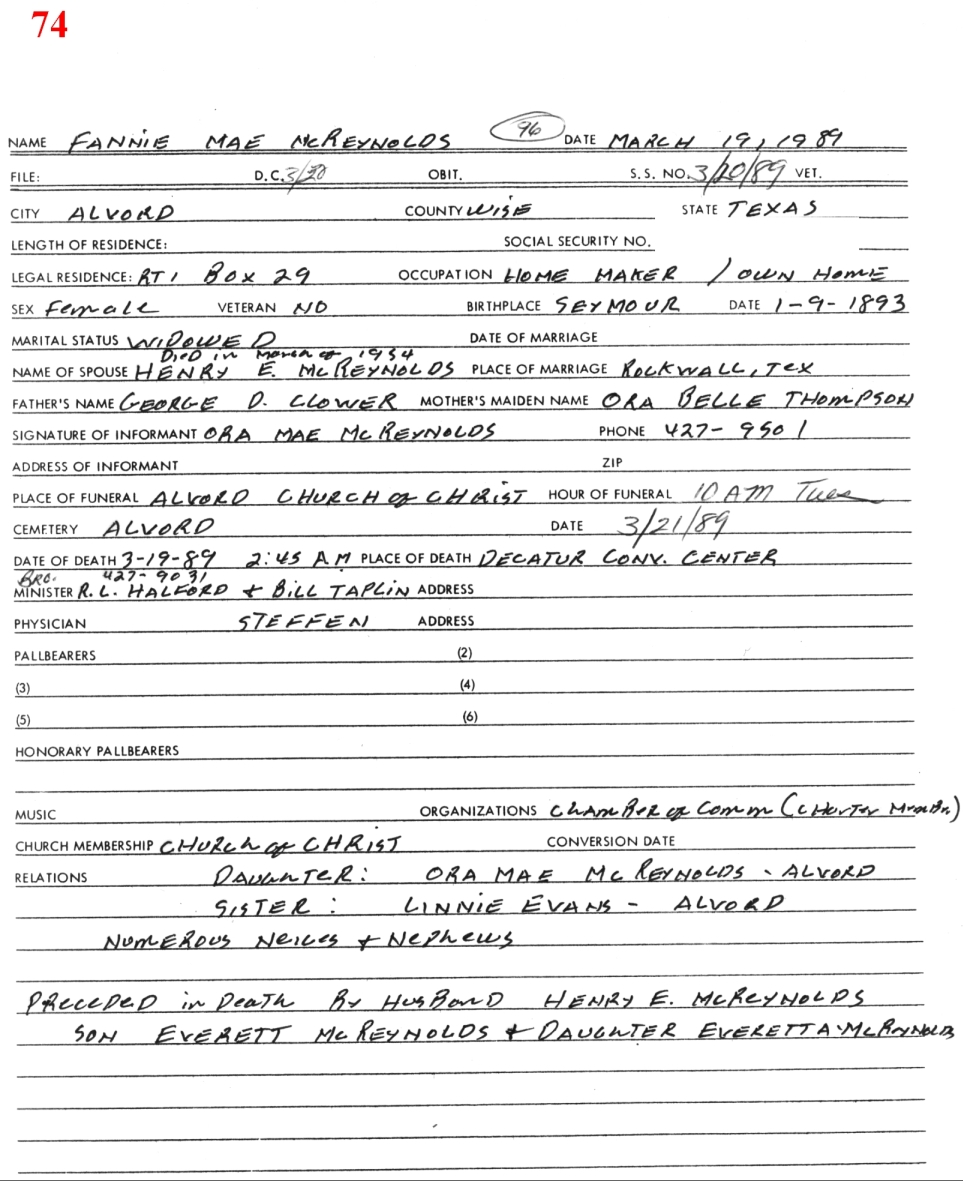 74
NAME FANNIE MAE McREYNOLDS 96 DATE MARCH 19, 1989
FILE: D.C. 3/20 OBIT. S.S. NO. 3/20/89 VET.
CITY ALVORD COUNTY WISE STATE TEXAS
LENGTH OF RESIDENCE: SOCIAL SECURITY NO.
LEGAL RESIDENCE: RT 1 BOX 29 OCCUPATION HOME MAKER / OWN HOME
SEX Female VETERAN NO BIRTHPLACE SEYMOUR DATE 1-9-1893
MARITAL STATUS WIDOWED DATE OF MARRIAGE
DIED in March of 1954
NAME OF SPOUSE HENRY E. McREYNOLDS PLACE OF MARRIAGE ROCKWALL, TEX
FATHER'S NAME GEORGE D. CLOWER MOTHER'S MAIDEN NAME ORA BELLE THOMPSON
SIGNATURE OF INFORMANT ORA MAE McREYNOLDS PHONE 427-9501
ADDRESS OF INFORMANT ZIP
PLACE OF FUNERAL ALVORD CHURCH of CHRIST HOUR OF FUNERAL 10 AM Tues
CEMETERY ALVORD DATE 3/21/89
DATE OF DEATH 3-19-89 2:45 AM PLACE OF DEATH DECATUR CONV. CENTER
BRO. 427-9031
MINISTER R. L. HALFORD + BILL TAPLIN ADDRESS
PHYSICIAN STEFFEN ADDRESS
PALLBEARERS (2)
(3) (4)
(5) (6)
HONORARY PALLBEARERS
MUSIC ORGANIZATIONS CHAMBER of Comm (CHARTER MemBr.)
CHURCH MEMBERSHIP CHURCH of CHRIST CONVERSION DATE
RELATIONS DAUGHTER: ORA MAE McREYNOLDS - ALVORD
SISTER: LINNIE EVANS - ALVORD
NUMEROUS NEICES + NEPHEWS
PRECEDED in Death By HUSBAND HENRY E. McREYNOLDS
SON EVERETT McREYNOLDS + DAUGHTER EVERETTA McREYNOLDS